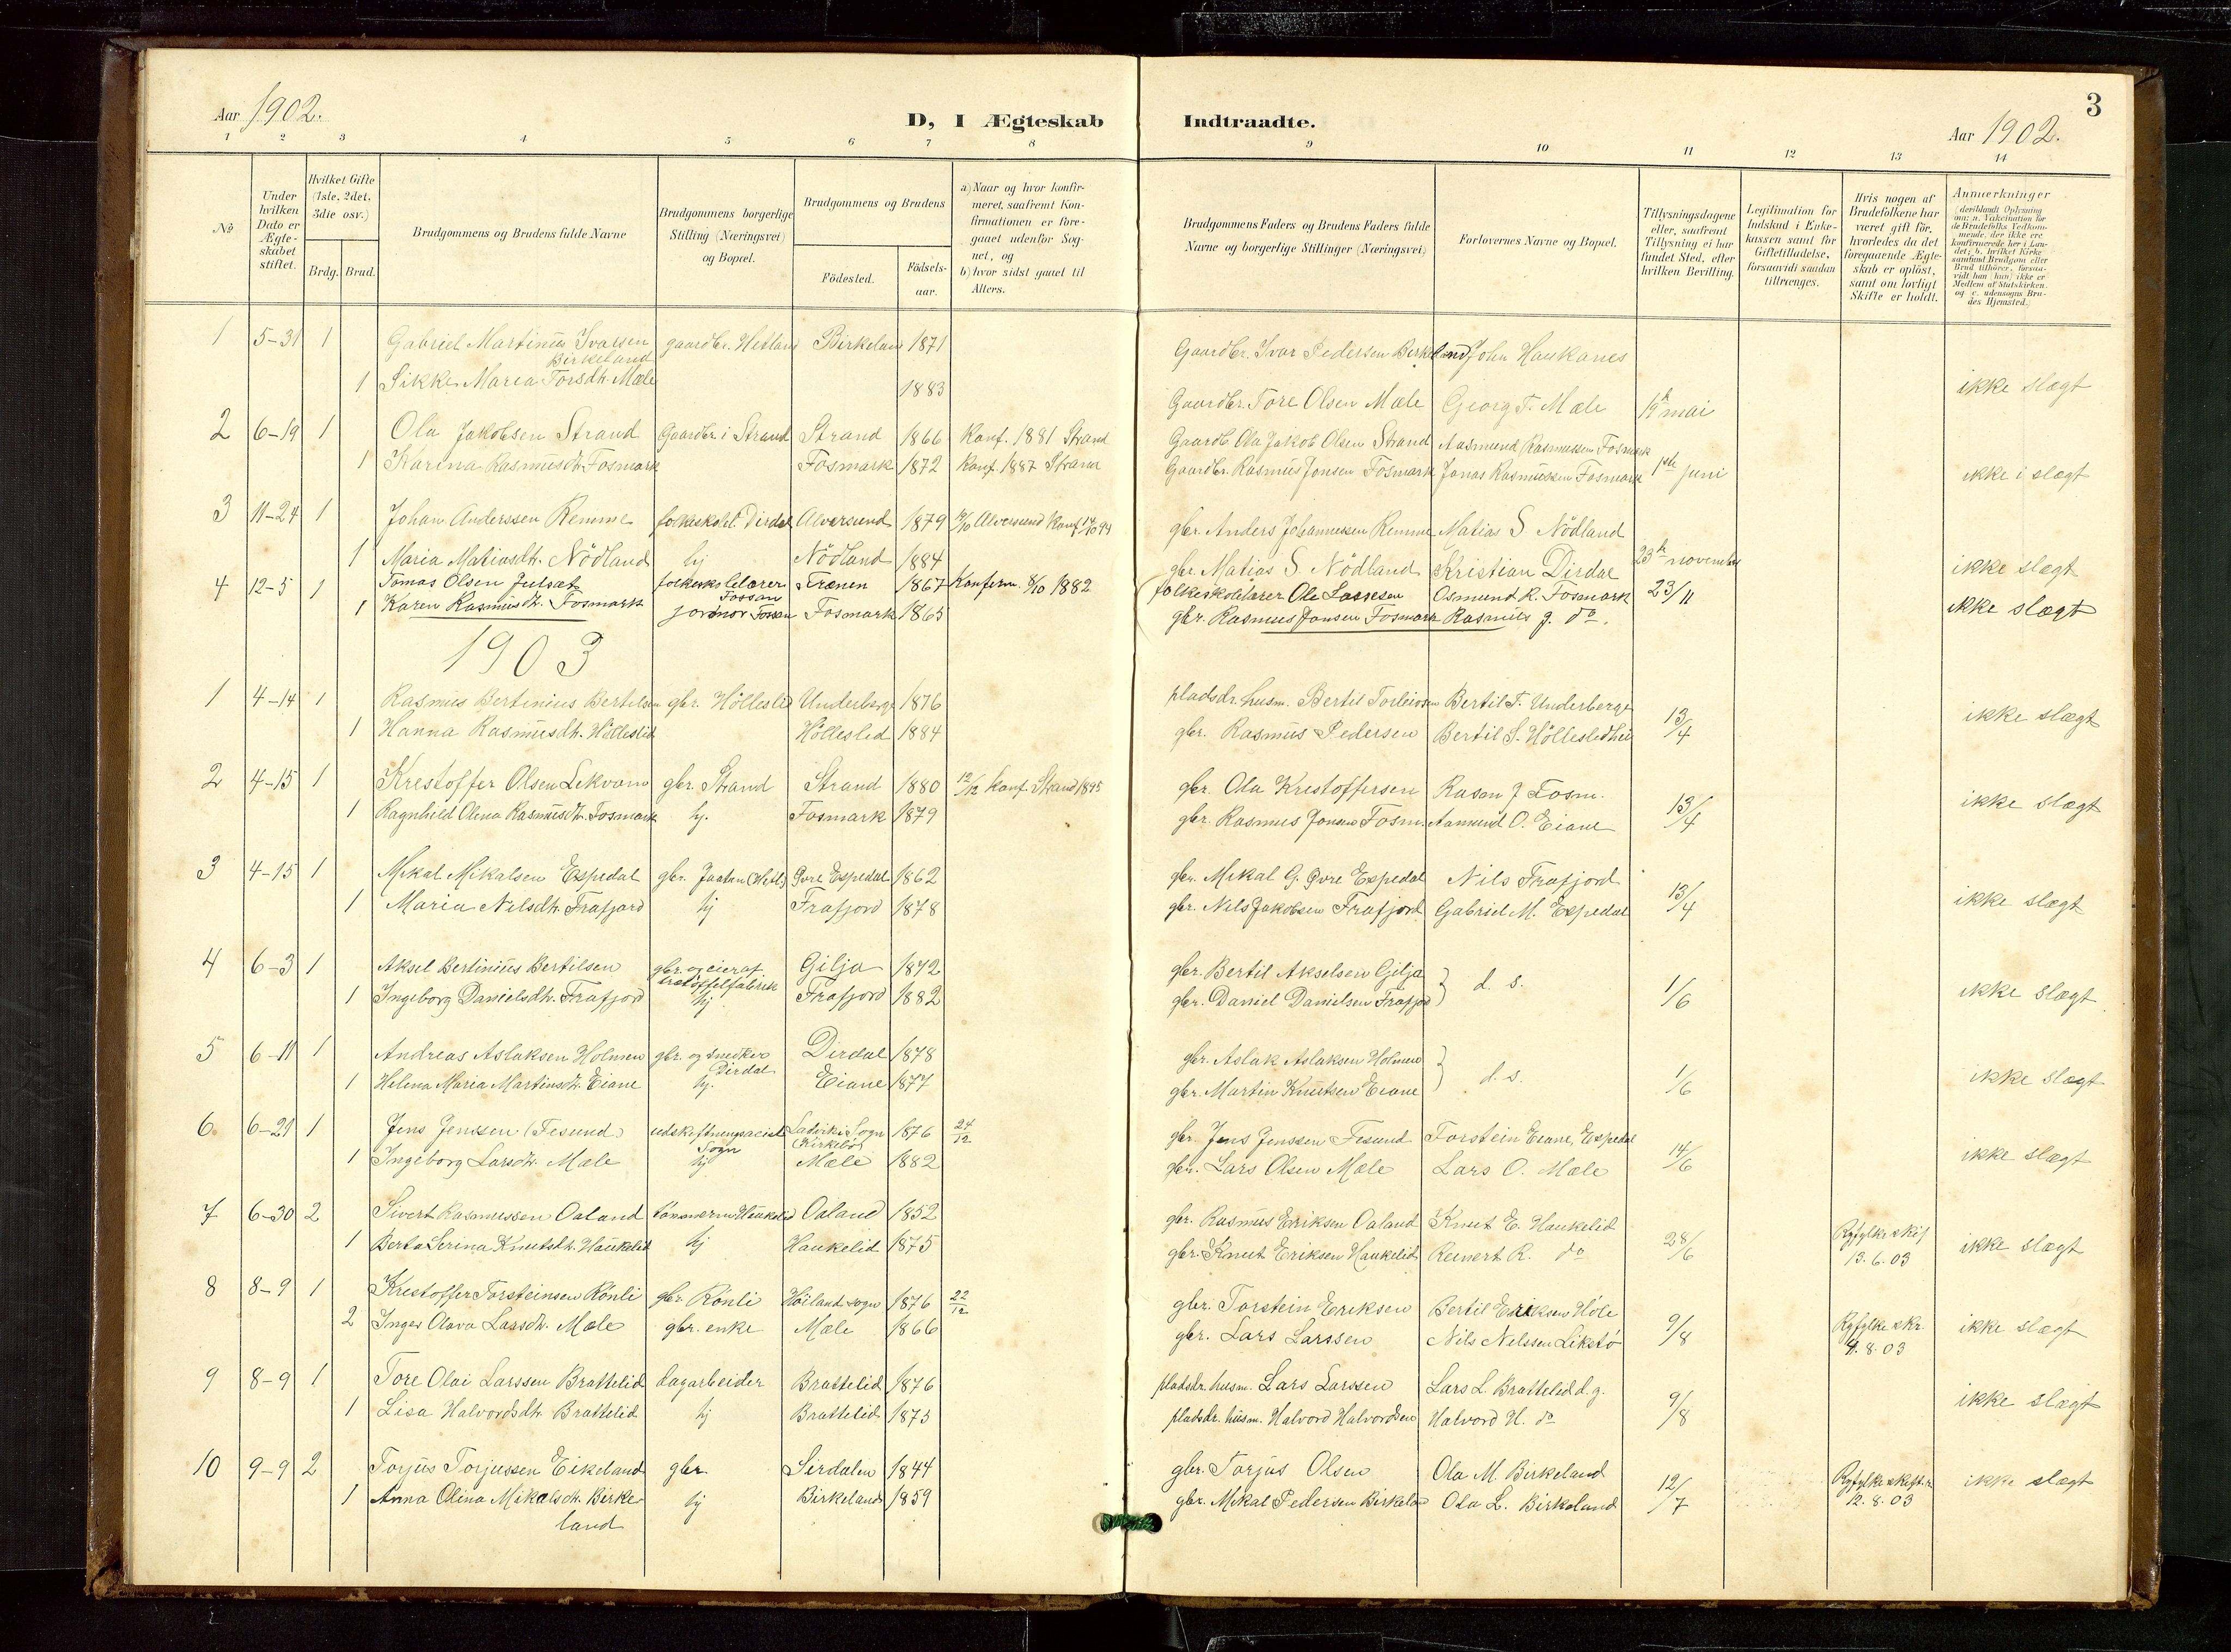 3
Aar 1902.
D, I Ægteskab Indtraadte.
Aar 1902.
1 2 3 4 5 6 7 8 9 10 11 12 13 14
No
Under hvilken Dato er Ægteskabet stiftet.
Hvilket Gifte (1ste, 2det, 3die osv.)
Brdg. Brud.
Brudgommens og Brudens fulde Navne
Brudgommens borgerlige Stilling (Næringsvei) og Bopæl.
Brudgommens og Brudens
Födested.
Födsels-aar.
a) Naar og hvor konfirmeret, saafremt Konfirmationen er foregaaet udenfor Sognet, og
b) hvor sidst gaaet til Alters.
Brudgommens Faders og Brudens Faders fulde Navne og borgerlige Stillinger (Næringsvei)
Forlovernes Navne og Bopæl.
Tillysningsdagene eller, saafremt Tillysning ei har fundet Sted, efter hvilken Bevilling.
Legitimation for Indskud i Enkekassen samt for Giftetilladelse, forsaavidt saadan tiltrænges.
Hvis nogen af Brudefolkene har været gift før, hvorledes da det foregaaende Ægteskab er oplöst, samt om lovligt Skifte er holdt.
Anmerkninger
1 5-31 1 Gabriel Martinus Ivarsen Birkeland gaardbr. Hetland Birkeland 1871 Gaardbr. Ivar Pedersen Birkeland John Haukanes
1 Sikke Maria Torsdtr. Mæle 1883 Gaardbr. Tore Olsen Mæle Georg T. Mæle mai ikke slægt
2 6-19 1 Ola Jakobsen Strand Gaardbr. i Strand Strand 1866 Konf. 1881 Strand Gaardb. Ola Jakob Olsen Strand Aasmund Rasmussen Fosmark
1 Karina Rasmusdtr. Fosmark Fosmark 1872 Konf. 1887 Strand Gaardbr. Rasmus Jonsen Fosmark Jonas Rasmussen Fosmark 1ste juni ikke i slægt
3 11-24 1 Johan Anderssen Remme folkeskol. Dirdal Alversund 1879 Alversund Konf. gbr. Anders Johannessen Remme Matias S Nödland
1 Maria Matiasdtr. Nödland hj Nödland 1884 gbr. Matias S Nödland Kristian Dirdal 23de november ikke slægt
4 12-5 1 Tomas Olsen Julsæt folkeskolelærer Fossan Trænen 1867 Konferm. 8/10 1882 folkeskolelærer Ole Lassesen Osmund R. Fosmark 23/11
1 Karen Rasmusdtr. Fosmark jordmor Fossan Fosmark 1865 gbr. Rasmus Jonsen Fosmark Rasmus J. do. ikke slægt
1903
1 4-14 1 Rasmus Bertinius Bertelsen gbr. Höllesli Underberge 1876 pladsdr. husm. Bertil Torleivsen Bertil T. Underberge
1 Hanna Rasmusdtr. Hölleslid Höllesled 1884 gbr. Rasmus Pedersen Bertil S. 13/4 ikke slægt
2 4-15 1 Krestoffer Olsen Lekvam gbr. Strand Strand 1880 12/12 konf. Strand 1895 gbr. Ola Krestoffersen Rasm J Fosm.
1 Ragnhild Olena Rasmusdtr. Fosmark hj. Fosmark 1879 gbr. Rasmus Jonsen Fosm. Aamund O. Eiane 13/4 ikke slægt
3 4-15 1 Mikal Mikalsen Espedal gbr. Jaatun (Hetl.) Övre Espedal 1862 gbr. Mikal G. Övre Espedal Nils Frafjord
1 Maria Nilsdtr. Frafjord hj Frafjord 1878 gbr. Nils Jakobsen Frafjord Gabriel M. Espedal 13/4 ikke slægt
4 6-3 1 Aksel Bertinius Bertilsen gbr. og eier af trætöffelfabrik Gilja 1872 gbr. Bertil Akselsen Gilja
1 Ingeborg Danielsdtr. Frafjord hj Frafjord 1882 gbr. Daniel Danielsen Frafjord } d. s. 1/6 ikke slægt
5 6-11 1 Andreas Aslaksen Holmen gbr. og snedker Dirdal Dirdal 1878 gbr. Aslak Aslaksen Holmen
1 Helena Maria Martinsdtr. Eiane hj. Eiane 1877 gbr. Martin Knutsen Eiane } d. s. 1/6 ikke slægt
6 6-21 1 Jens Jenssen (Tesund) Sogn Ladvik i Sogn (Kirkebö) 1876 24/12 gbr. Jens Jenssen Tesund Torstein Eiane, Espedal
1 Ingeborg Larsdtr. Mæle hj Mæle 1882 gbr. Lars Olsen Mæle Lars O. Mæle 14/6 ikke slægt
7 6-30 2 Sivert Rasmussen Oaland Haukelid Oaland 1852 gbr. Rasmus Eriksen Oaland Knut E. Haukelid
1 Berta Serina Knutsdtr. Haukelid hj Haukelid 1875 gbr. Knut Eriksen Haukelid Reinert R. do 28/6 Ryfylke skif 13.6.03 ikke slægt
8 8-9 1 Krestoffer Torsteinsen Rönli gbr. Rönli Höiland sogn 1876 22/12 gbr. Torstein Eriksen Bertil Eriksen Höle
2 Inger Olava Larsdtr. Mæle gbr. enke Mæle 1866 gbr. Lars Larssen Nils Nelssen Likstö 9/8 Ryfylke skr. 4.8.03 ikke slægt
9 8-9 1 Tore Olai Larssen Brattelid dagarbeider Brattelid 1876 pladsdr. husm. Lars Larssen Lars L. Brattelid d.y.
1 Lisa Halvordsdtr. Brattelid hj Brattelid 1875 pladsdr. husm. Halvord Halvordsen Halvord H. do 9/8 ikke slægt
10 9-9 2 Torjus Torjussen Eikeland gbr. Sirdalen 1844 gbr. Torjus Olsen Ola M. Birkeland
1 Anna Olina Mikalsdtr. Birkeland hj Birkeland 1859 gbr. Mikal Pedersen Birkeland Ola L. Birkeland 12/7 Ryfylke skift. 12.8.03 ikke slægt